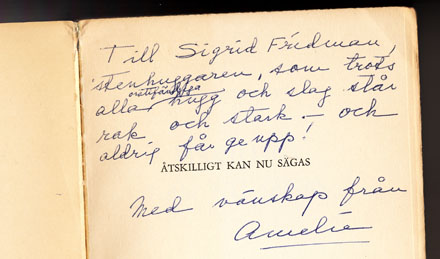 Till Sigrid Fridman,
stenhuggaren, som trots
orättfärdiga
alla hugg och slag står
rak och stark – och
aldrig får ge upp!
ÅTSKILLIGT KAN NU SÄGAS
Med vänskap från
Amelie